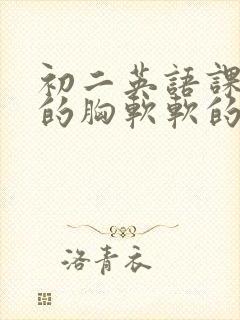 初二英語課
的胸軟軟的
洛青衣